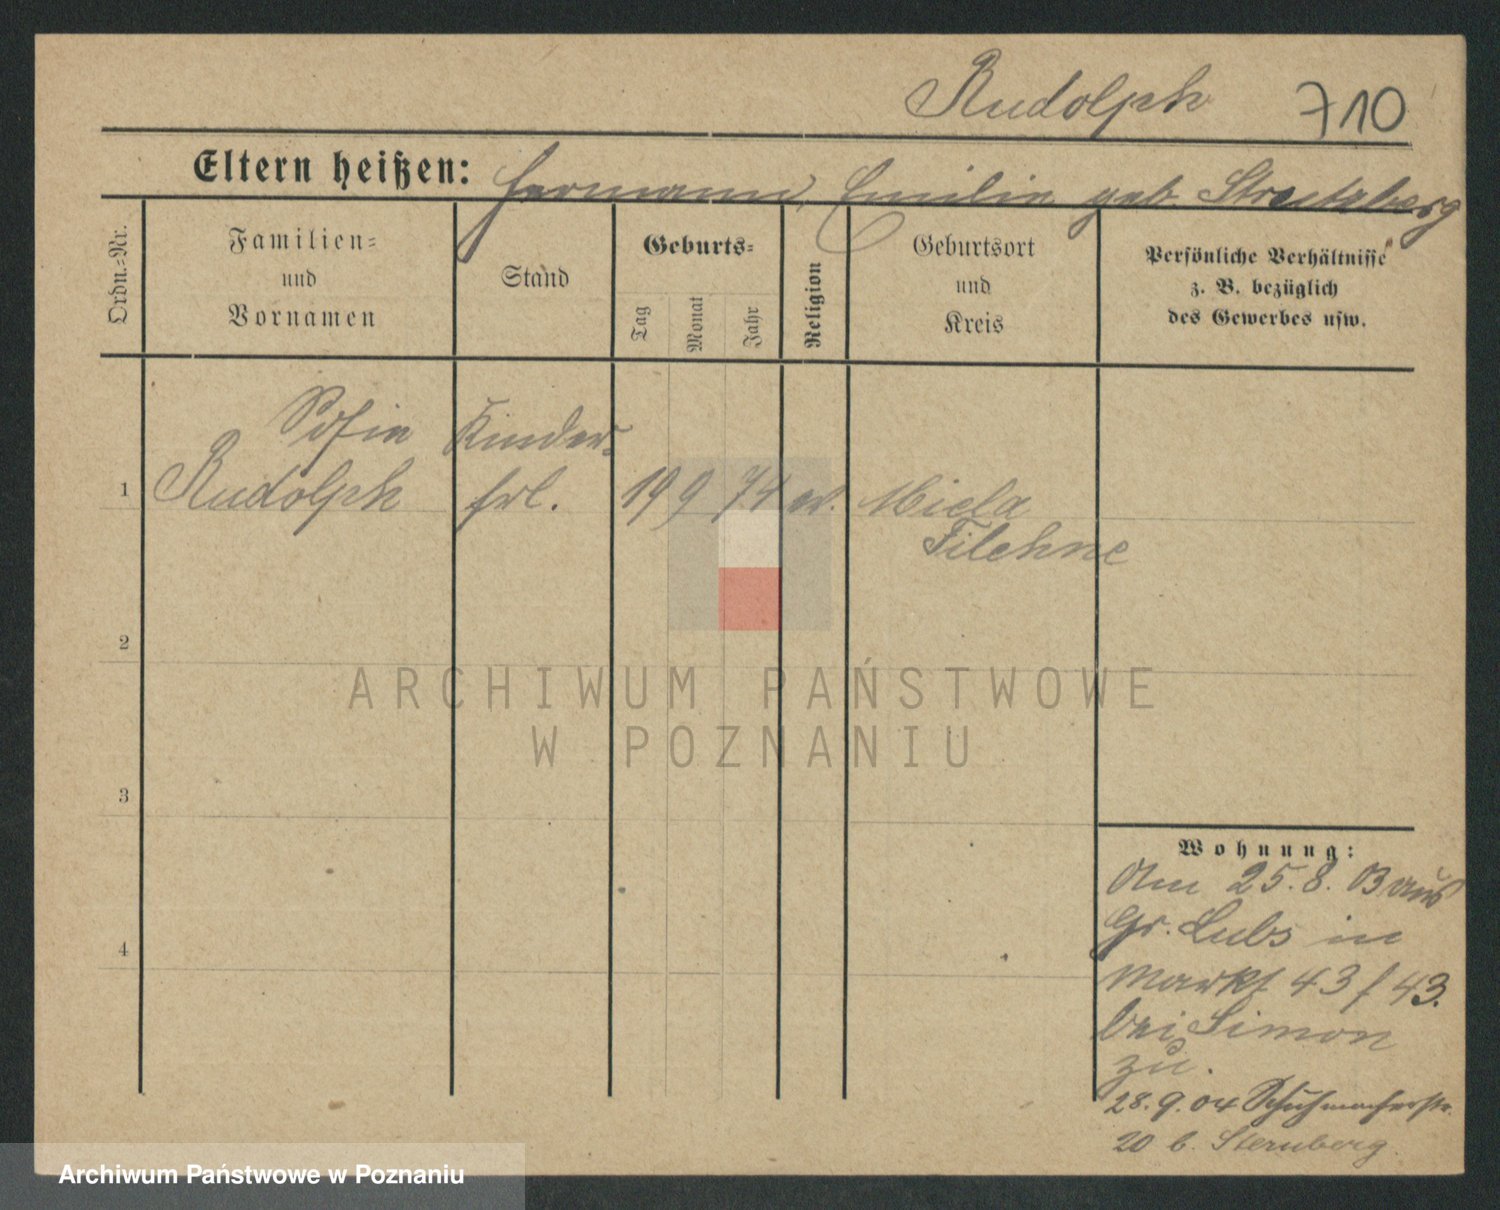 Rudolph 710
Eltern heißen: Hermann, Emilie geb. Streitzberg
Ordn.-Nr.
Familien-
und
Vornamen
Stand
Geburts-
Tag
Monat
Jahr
Religion
Geburtsort
und
Kreis
Persönliche Verhältnisse
z. B. bezüglich
des Gewerbes usw.
Sofie Kinder-
1 Rudolph frl. 19 9 74 ev. Miela
Filehne
2
3
4
Wohnung:
Am 25.8.03 aus
Gr. Lubs in
Markt 43 / 43.
bei Simon
zu.
28.9.04 Schuhmacherstr.
20 b. Sternberg.
ARCHIWUM PAŃSTWOWE
W POZNANIU
Archiwum Państwowe w Poznaniu